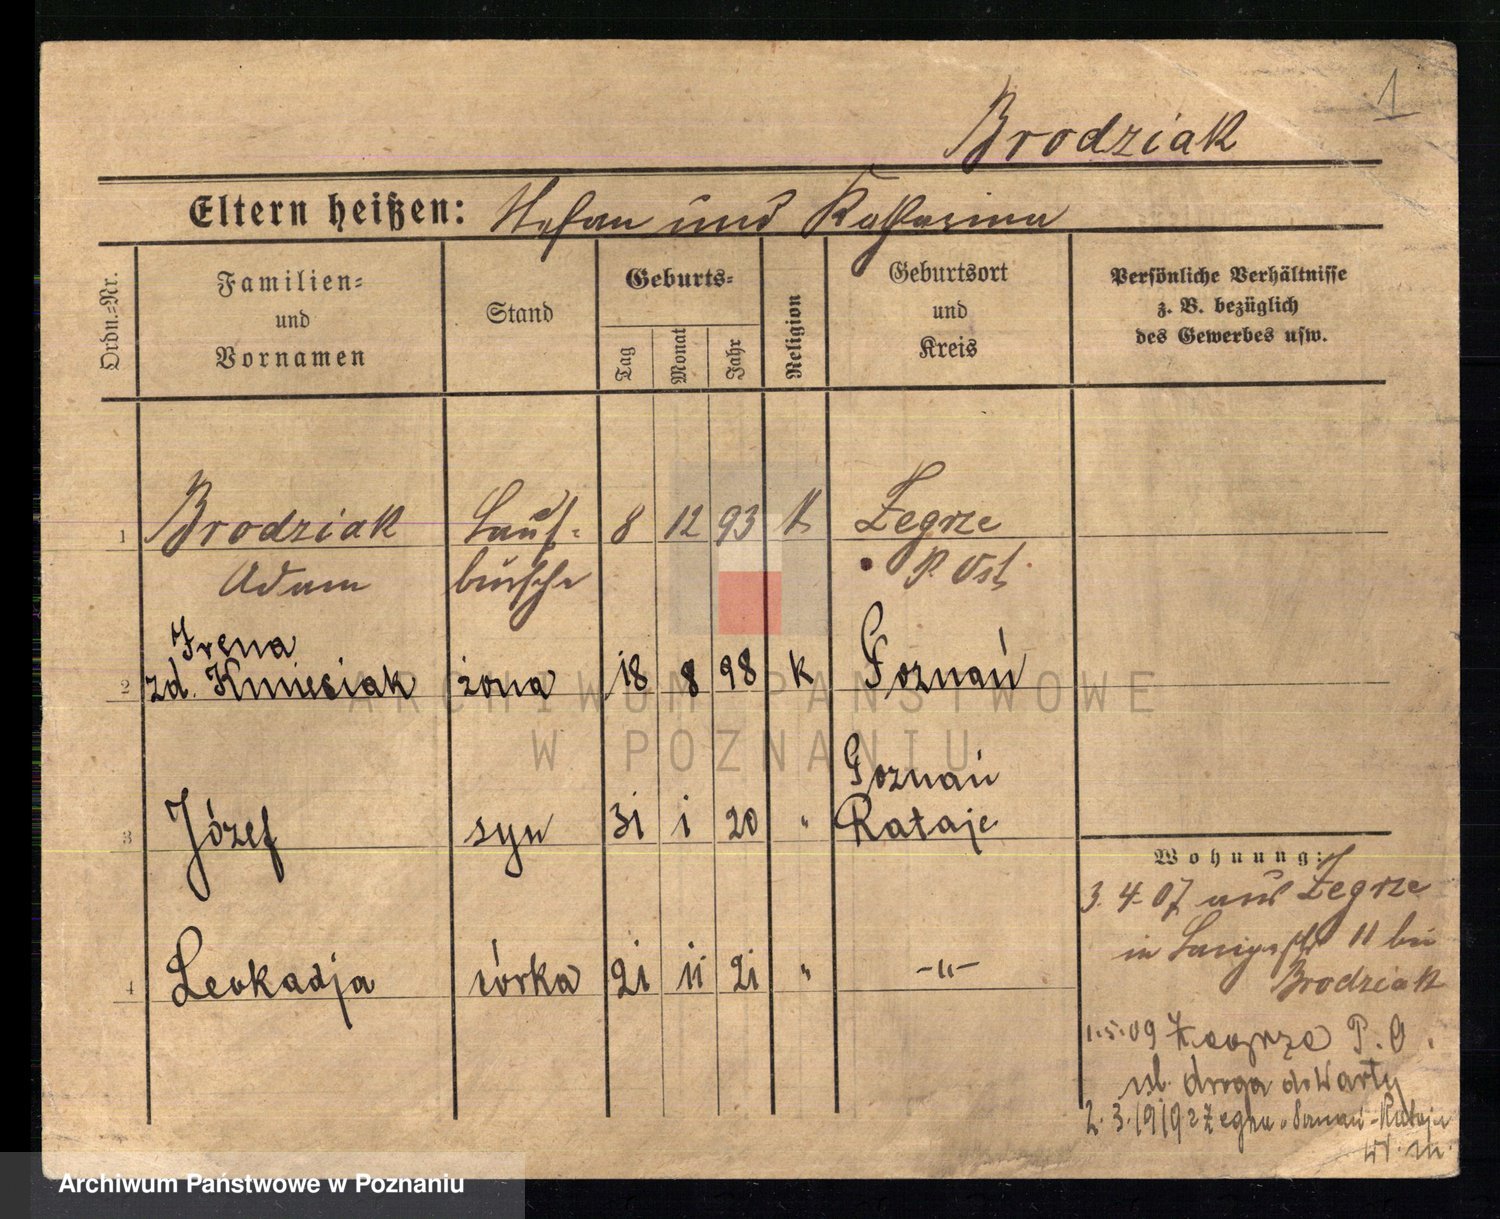 1
Brodziak
Eltern heißen: Stefan und Katharina
Ordn.-Nr.
Familien-
und
Vornamen
Stand
Geburts-
Tag
Monat
Jahr
Religion
Geburtsort
und
Kreis
Persönliche Verhältnisse
z. B. bezüglich
des Gewerbes usw.
1 Brodziak Lauf- 8 12 93 K Zegrze
Adam bursche P. Ost
Irena
2 zd. Kmieciak żona 18 8 98 k Poznań
Poznań
3 Józef syn 31 1 20 " Rataje
4 Leokadja córka 21 11 21 " -"-
Wohnung:
3.4.07 aus Zegrze
in 11 bei
Brodziak
1.5.09 P. O.
droga do Warty
2.3.1919
ARCHIWUM PAŃSTWOWE
W POZNANIU
Archiwum Państwowe w Poznaniu